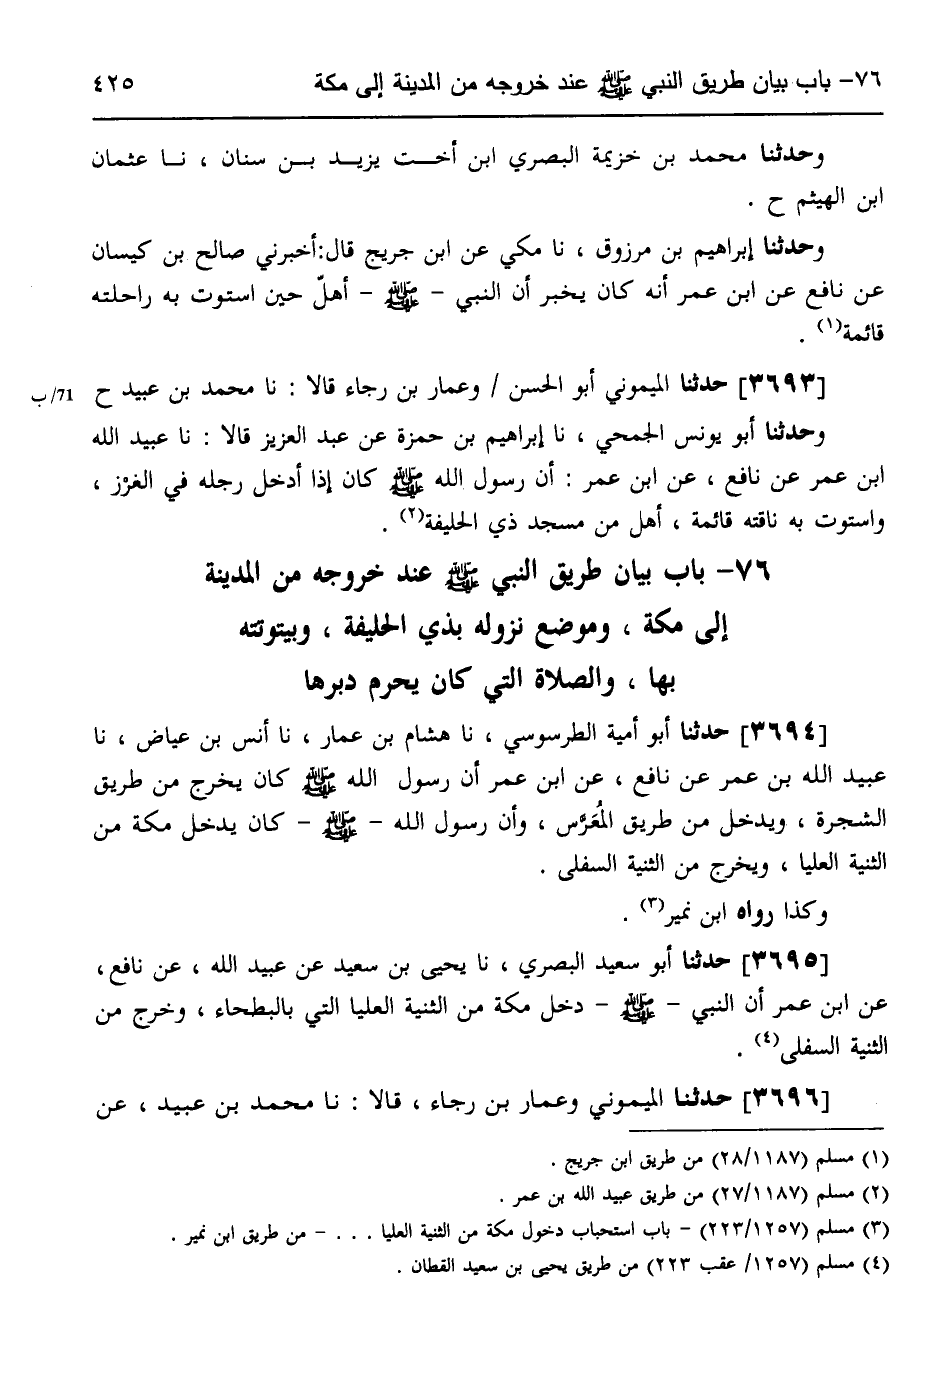 ٧٦- باب بيان طريق النبي ﷺ عند خروجه من المدينة إلى مكة ٤٢٥
وحدثنا محمد بن خزيمة البصري ابن أخت يزيد بن سنان ، نا عثمان
ابن الهيثم ح .
وحدثنا إبراهيم بن مرزوق ، نا مكي عن ابن جريج قال:أخبرني صالح بن كيسان
عن نافع عن ابن عمر أنه كان يخبر أن النبي - ﷺ - أهلّ حين استوت به راحلته
قائمة(١) .
[٣٦٩٣] حدثنا الميموني أبو الحسن / وعمار بن رجاء قالا : نا محمد بن عبيد ح 71/ب
وحدثنا أبو يونس الجمحي ، نا إبراهيم بن حمزة عن عبد العزيز قالا : نا عبيد الله
ابن عمر عن نافع ، عن ابن عمر : أن رسول الله ﷺ كان إذا أدخل رجله في الغرْز ،
واستوت به ناقته قائمة ، أهل من مسجد ذي الحليفة(٢) .
٧٦- باب بيان طريق النبي ﷺ عند خروجه من المدينة
إلى مكة ، وموضع نزوله بذي الحليفة ، وبيتوتته
بها ، والصلاة التي كان يحرم دبرها
[٣٦٩٤] حدثنا أبو أمية الطرسوسي ، نا هشام بن عمار ، نا أنس بن عياض ، نا
عبيد الله بن عمر عن نافع ، عن ابن عمر أن رسول الله ﷺ كان يخرج من طريق
الشجرة ، ويدخل من طريق المُعَرَّس ، وأن رسول الله - ﷺ - كان يدخل مكة من
الثنية العليا ، ويخرج من الثنية السفلى .
وكذا رواه ابن نمير(٣) .
[٣٦٩٥] حدثنا أبو سعيد البصري ، نا يحيى بن سعيد عن عبيد الله ، عن نافع،
عن ابن عمر أن النبي - ﷺ - دخل مكة من الثنية العليا التي بالبطحاء ، وخرج من
الثنية السفلى(٤) .
[٣٦٩٦] حدثنا الميموني وعمار بن رجاء ، قالا : نا محمد بن عبيد ، عن
(١) مسلم (٢٨/١١٨٧) من طريق ابن جريج .
(٢) مسلم (٢٧/١١٨٧) من طريق عبيد الله بن عمر .
(٣) مسلم (٢٢٣/١٢٥٧) - باب استحباب دخول مكة من الثنية العليا . . . - من طريق ابن نمير .
(٤) مسلم (١٢٥٧/ عقب ٢٢٣) من طريق يحيى بن سعيد القطان .